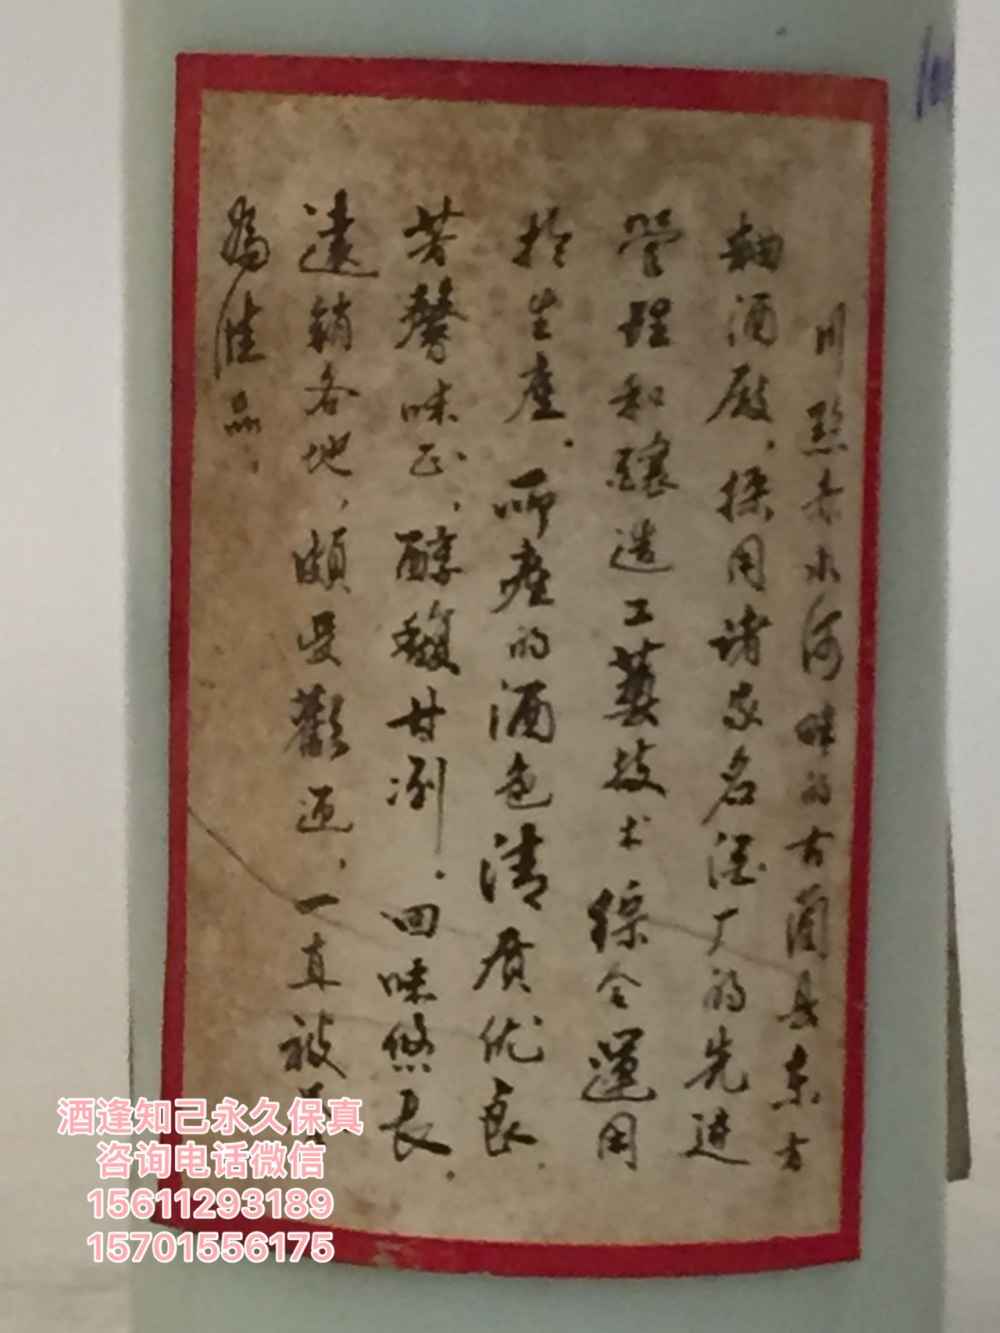 川黔赤水河畔的古蔺县东方
麯酒厰，採用诸家名酒厂的先进
管理和釀造工藝技术綜合運用
於生產。所產的酒色清质优良。
芳馨味正，醇馥甘冽。回味悠长。
遠銷各地，頗受歡迎，一直被
為佳品。
酒逢知己永久保真
咨询电话微信
15611293189
15701556175